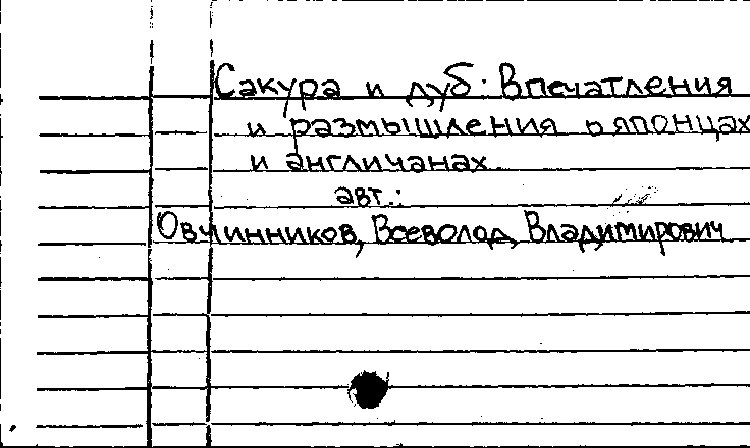 Сакура и дуб: Впечатления
и размышления о японцах
и англичанах
авт.:
Овчинников, Всеволод Владимирович